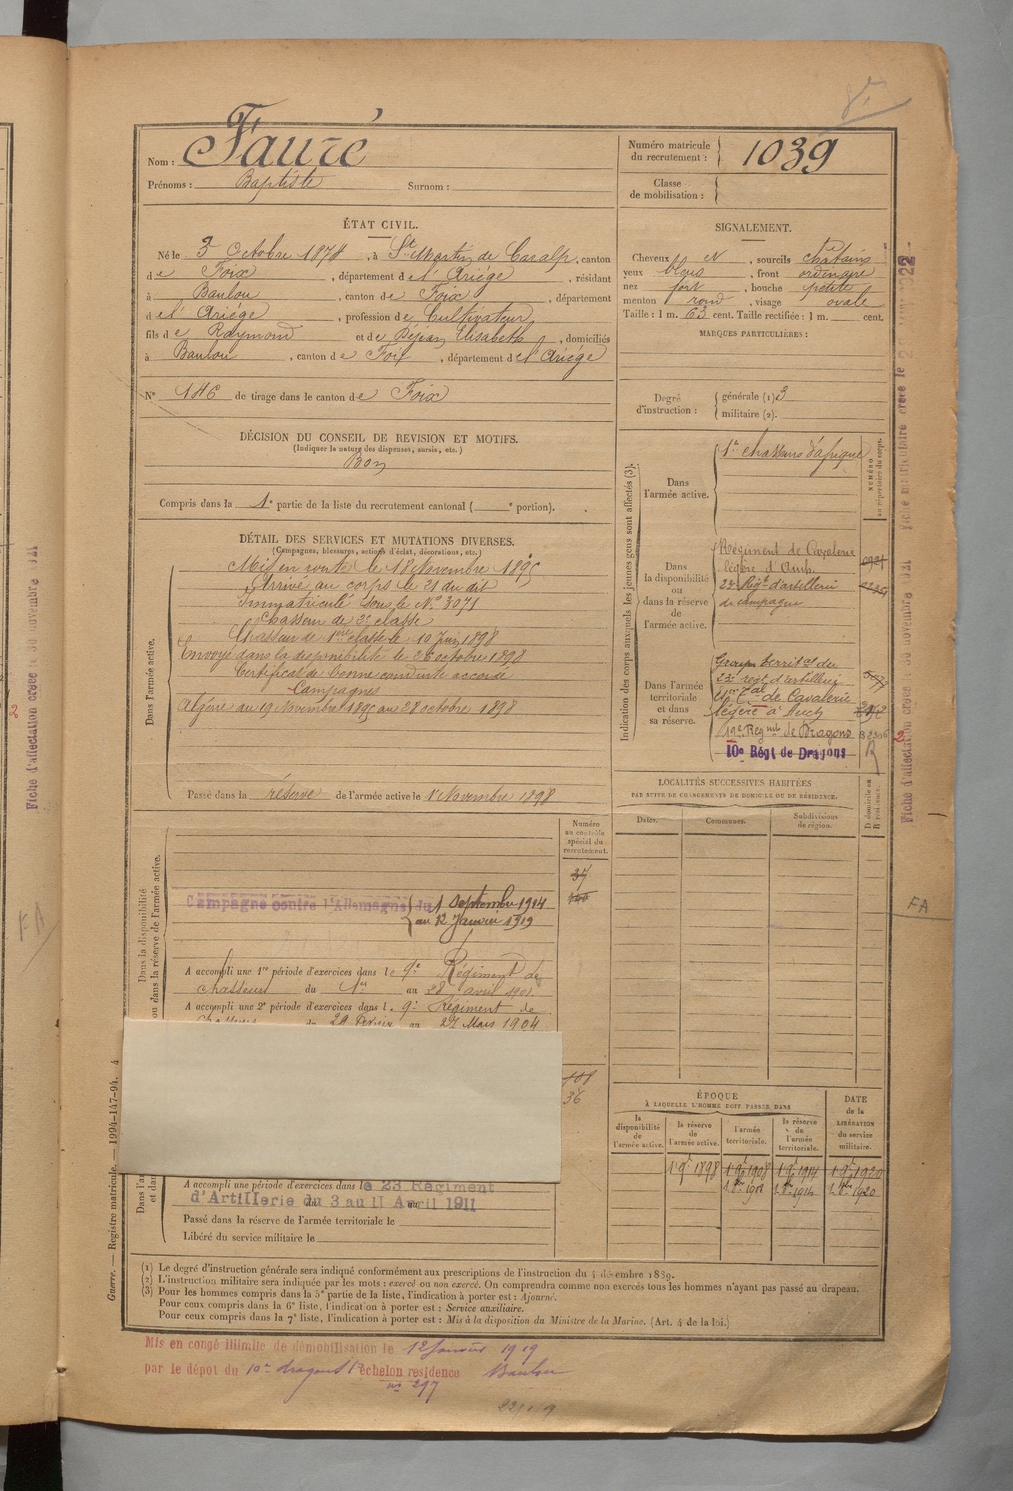 Nom : Fauré
Prénoms : Baptiste Surnom :
Numéro matricule du recrutement : 1039
Classe de mobilisation :
ÉTAT CIVIL.
Né le 3 Octobre 1874, à St Martin de Caralp, canton
de Foix, département de l'Ariége, résidant
à Baulou, canton de Foix, département
de l'Ariége, profession de Cultivateur
fils de Raymond et de Déjean Elisabeth, domiciliés
à Baulou, canton de Foix, département de l'Ariége
N° 146 de tirage dans le canton de Foix
DÉCISION DU CONSEIL DE REVISION ET MOTIFS.
(Indiquer la nature des dispenses, sursis, etc.)
Bon
Compris dans la 1e partie de la liste du recrutement cantonal ( e portion).
SIGNALEMENT.
Cheveux N, sourcils chatains
yeux bleus, front ordinaire
nez fort, bouche petite
menton rond, visage ovale
Taille : 1 m. 63 cent. Taille rectifiée : 1 m. cent.
MARQUES PARTICULIÈRES :
Degré d'instruction : générale (1) 3
militaire (2).
DÉTAIL DES SERVICES ET MUTATIONS DIVERSES.
(Campagnes, blessures, actions d'éclat, décorations, etc.)
Dans l'armée active.
Mis en route le 18 Novembre 1895
Arrivé au corps le 21 du dit
Immatriculé sous le N° 3071
Chasseur de 2e classe
Chasseur de 1ere classe le 10 Juin 1898
Envoyé dans la disponibilité le 28 octobre 1898
Certificat de bonne conduite accordé
Campagnes
Algérie du 19 Novembre 1895 au 28 octobre 1898
Passé dans la réserve de l'armée active le 1 Novembre 1898
Indication des corps auxquels les jeunes gens sont affectés (3).
NUMÉRO au répertoire du corps.
Dans l'armée active.
1er chasseurs d'afrique
Dans la disponibilité ou dans la réserve de l'armée active.
Régiment de Cavalerie
légère d'Auch.
23e Régt d'artillerie
de campagne
Dans l'armée territoriale et dans sa réserve.
Groupe territal du
23e régt d'artillerie
de Cavalerie
légère à Auch
19e Regmt de Dragons
10e Régt de Dragons
R
LOCALITÉS SUCCESSIVES HABITÉES
PAR SUITE DE CHANGEMENTS DE DOMICILE OU DE RÉSIDENCE.
Dates. Communes. Subdivisions de région. D domicile ou R résidence.
Dans la disponibilité ou dans la réserve de l'armée active.
Numéro au contrôle spécial du recrutement.
37
Campagne contre l'Allemagne du 1 Septembre 1914
au 12 Janvier 1919
A accompli une 1re période d'exercices dans le 9e Régiment de
chasseurs du 1er au 28 avril 1901
A accompli une 2e période d'exercices dans l. 9e Régiment de
du 29 Février au 27 Mars 1904
36
A accompli une période d'exercices dans le 23 Régiment
d'Artillerie du 3 au 11 Avril 1911
Passé dans la réserve de l'armée territoriale le
Libéré du service militaire le
ÉPOQUE
À LAQUELLE L'HOMME DOIT PASSER DANS
la disponibilité de l'armée active. la réserve de l'armée active. l'armée territoriale. la réserve de l'armée territoriale.
DATE de la LIBÉRATION du service militaire.
(1) Le degré d'instruction générale sera indiqué conformément aux prescriptions de l'instruction du 4 décembre 1889.
(2) L'instruction militaire sera indiquée par les mots : exercé ou non exercé. On comprendra comme non exercés tous les hommes n'ayant pas passé au drapeau.
(3) Pour les hommes compris dans la 5e partie de la liste, l'indication à porter est : Ajourné.
Pour ceux compris dans la 6e liste, l'indication à porter est : Service auxiliaire.
Pour ceux compris dans la 7e liste, l'indication à porter est : Mis à la disposition du Ministre de la Marine. (Art. 4 de la loi.)
Mis en congé illimité de démobilisation le 12 Janvier 1919
par le dépot du 10e dragons échelon residence Baulou
n° 297
Guerre. — Registre matricule. — 1994-147-94. 4
Fiche d'affectation créée le 30 novembre 1921
FA
FA